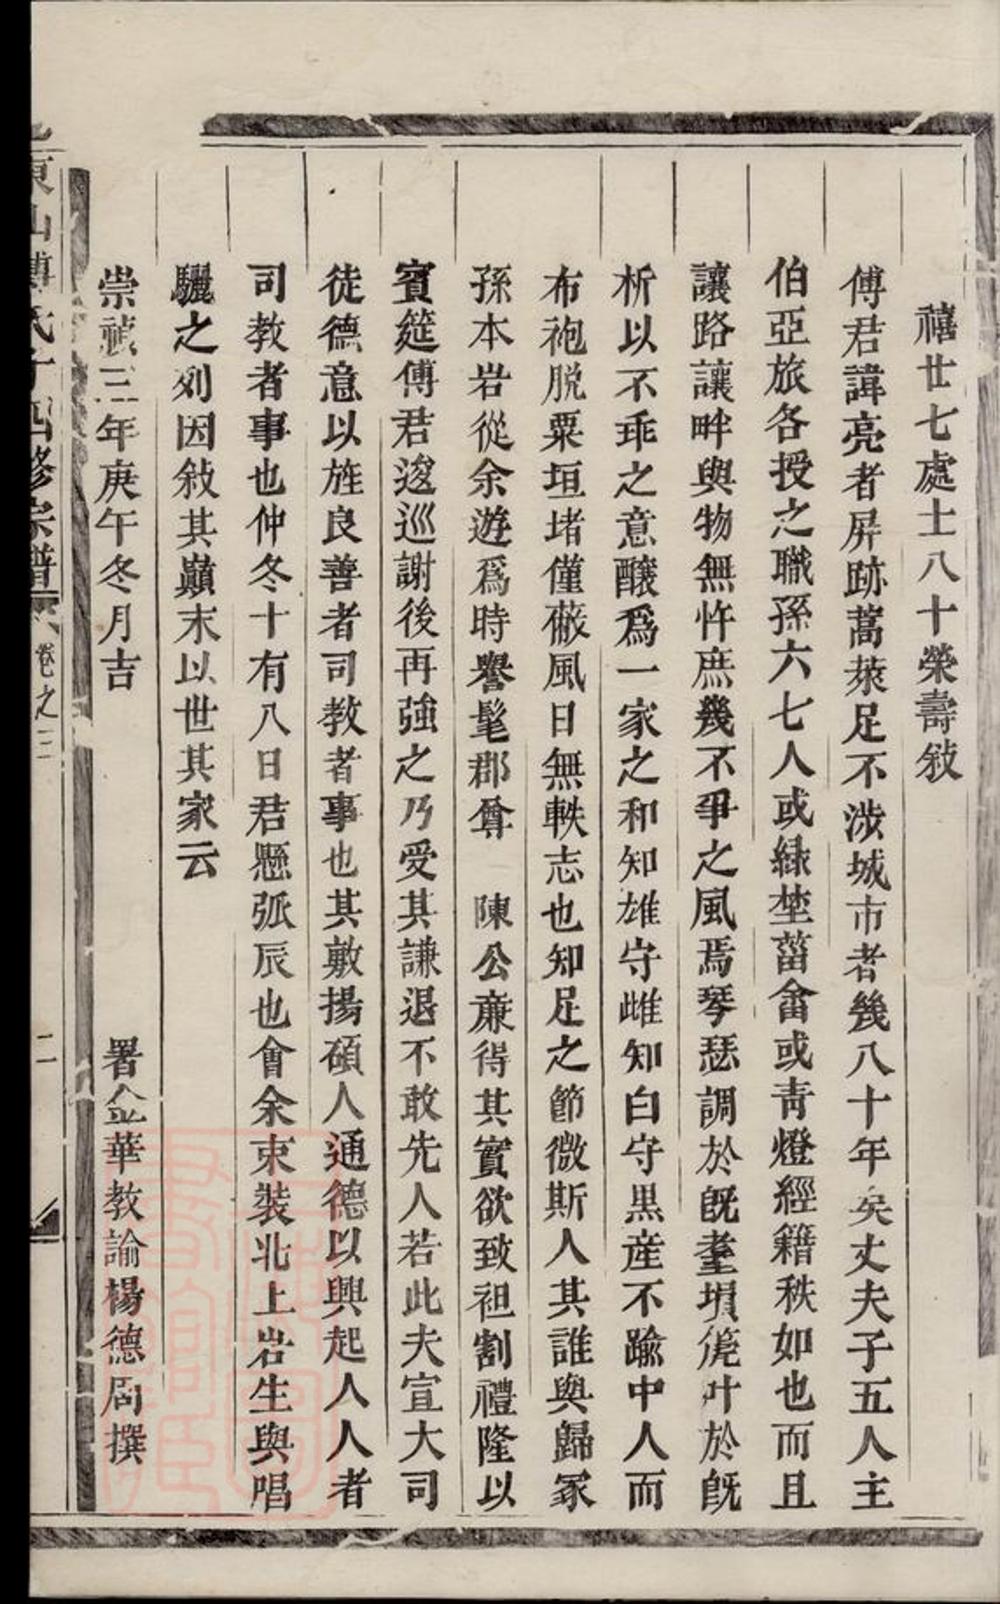 禧廿七處士八十榮壽敍
傅君諱亮者屏跡蒿萊足不涉城市者幾八十年矣丈夫子五人主
伯亞旅各授之職孫六七人或緑埜菑畬或青燈經籍秩如也而且
讓路讓畔與物無忤庶幾不爭之風焉琴瑟調於旣耋塤箎叶於旣
析以不乖之意釀爲一家之和知雄守雌知白守黒産不踰中人而
布袍脱粟垣堵僅蔽風日無軼志也知足之節微斯人其誰與歸冢
孫本岩從余遊爲時譽髦郡尊 陳公亷得其實欲致袒割禮隆以
賓筵傅君逡巡謝後再強之乃受其謙退不敢先人若此夫宣大司
徒德意以旌良善者司教者事也其敭揚碩人通德以興起人人者
司教者事也仲冬十有八日君懸弧辰也會余束裝北上岩生與唱
驪之列因敍其巔末以世其家云
崇禎三年庚午冬月吉 署金華教諭楊德周撰
東山傅氏十四修宗譜 卷之三 二